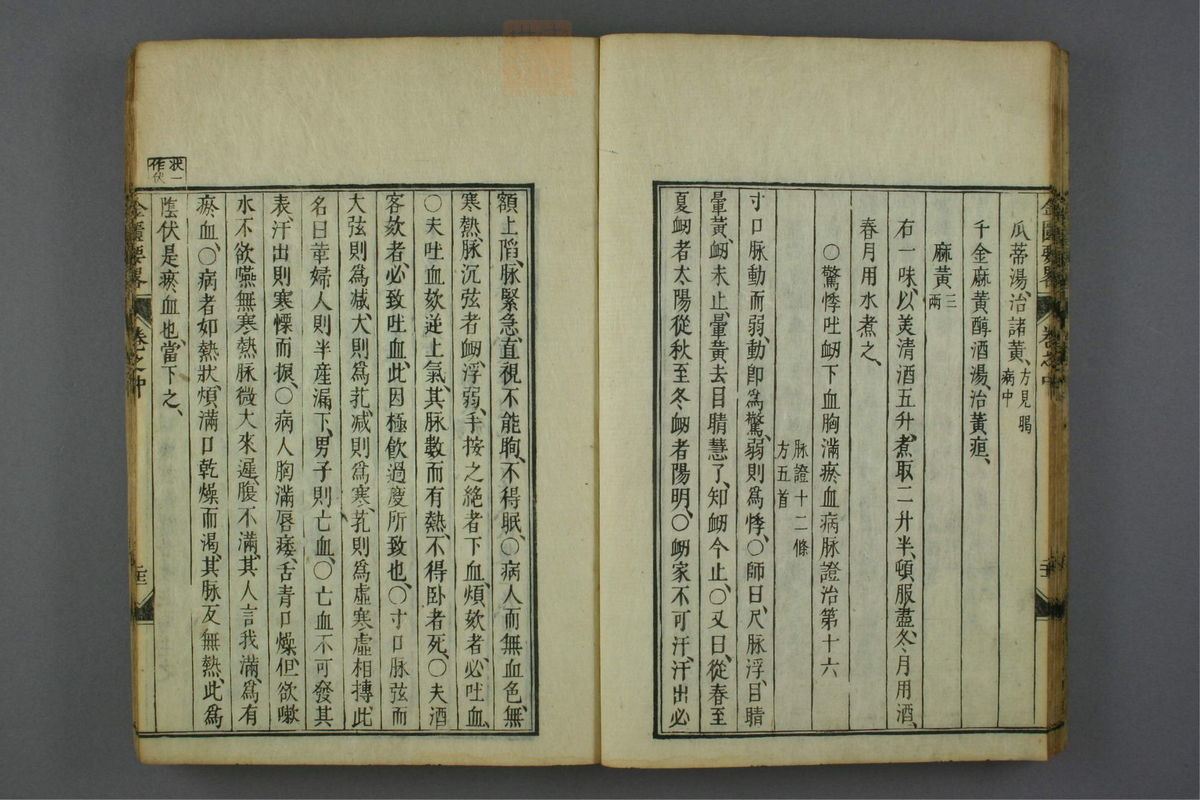 瓜蒂湯、治諸黃、方見暍病中
千金麻黃醇酒湯、治黃疸、
麻黃三兩
右一味、以美清酒五升、煮取二升半、頓服盡、冬月用酒、
春月用水煮之、
○驚悸吐衂下血胸滿瘀血病脉證治第十六
脉證十二條
方五首
寸口脉動而弱、動即爲驚、弱則爲悸、○師曰、尺脉浮、目睛
暈黃、衂未止、暈黃去、目睛慧了、知衂今止、○又曰、從春至
夏衂者太陽、從秋至冬衂者陽明、○衂家不可汗、汗出必
額上陷、脉緊急、直視不能眴、不得眠、○病人面無血色、無
寒熱、脉沉弦者衂、浮弱、手按之絶者下血、煩欬者、必吐血、
○夫吐血、欬逆上氣、其脉數而有熱、不得卧者死、○夫酒
客欬者、必致吐血、此因極飲過度所致也、○寸口脉弦而
大、弦則爲减、大則爲芤、减則爲寒、芤則爲虛、寒虛相摶、此
名曰革、婦人則半産漏下、男子則亡血、○亡血不可發其
表、汗出則寒慄而振、○病人胸滿、唇痿、舌青口燥、但欲嗽
水、不欲嚥、無寒熱、脉微大來遲、腹不滿、其人言我滿、爲有
瘀血、○病者如熱狀、煩滿、口乾燥而渴、其脉反無熱、此爲
陰伏、是瘀血也、當下之、
狀一作伏
金匱要畧
卷之中